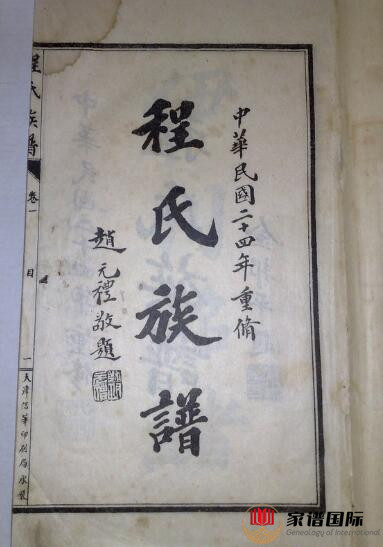 中華民國二十四年重脩
程氏族譜
趙元禮敬題
程氏族譜
卷一
目
一
天津信華印刷局承製
家谱国际
Genealogy of International